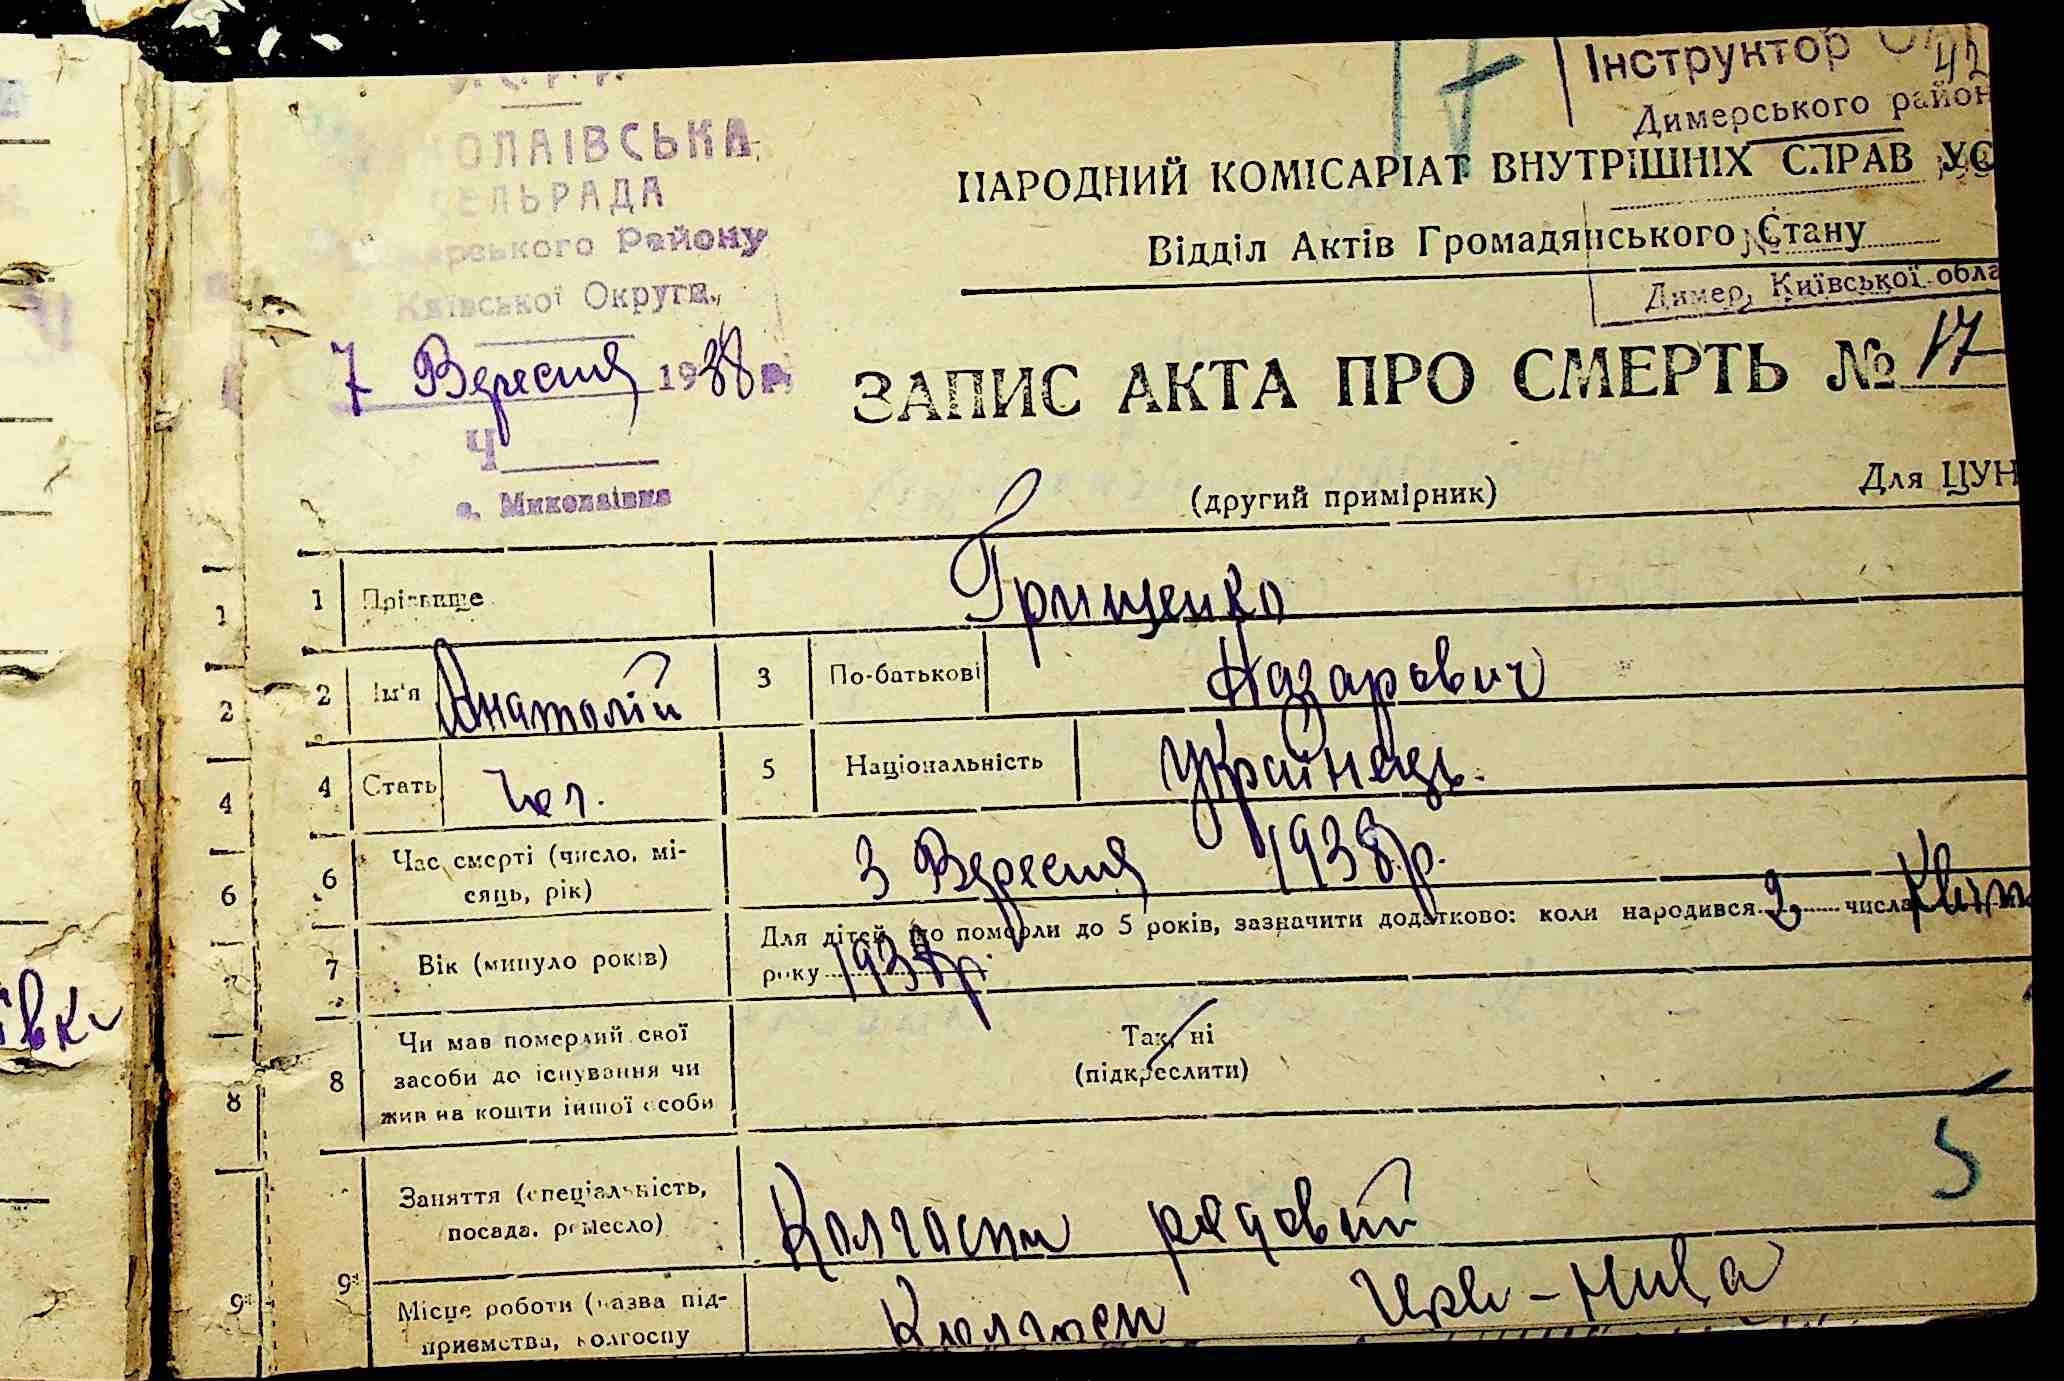 ОЛАІВСЬКА
ЕЛЬРАДА
Району
Київської Округи.
7 Вересня 1938 р.
Ч
с. Миколаївка
Інструктор
42
Димерського район
НАРОДНИЙ КОМІСАРІАТ ВНУТРІШНІХ СПРАВ УС
Відділ Актів Громадянського Стану
№
Димер, Київської обла
ЗАПИС АКТА ПРО СМЕРТЬ № 17
(другий примірник)
Для ЦУН
1 1 Прізвище Грищенко
2 2 Ім'я Анатолій 3 По-батькові Назарович
4 4 Стать чол. 5 Національність Українець.
6 6 Час смерті (число, мі-
сяць, рік) 3 Вересня 1938 р.
7 7 Вік (минуло років) Для дітей, що померли до 5 років, зазначити додатково: коли народився 2 числа Квітн
року
8 8 Чи мав померлий свої
засоби до існування чи
жив на кошти іншої особи
Так, ні
(підкреслити)
5
9 9 Заняття (спеціальність,
посада, ремесло) Колгосп рядовий
Місце роботи (назва під-
приємства, колгоспу Колгосп Черв-Нива
івки